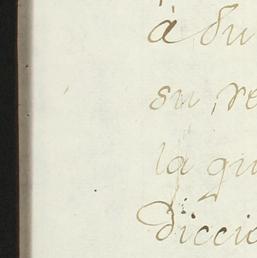 à su
su, re
la qu
diccio